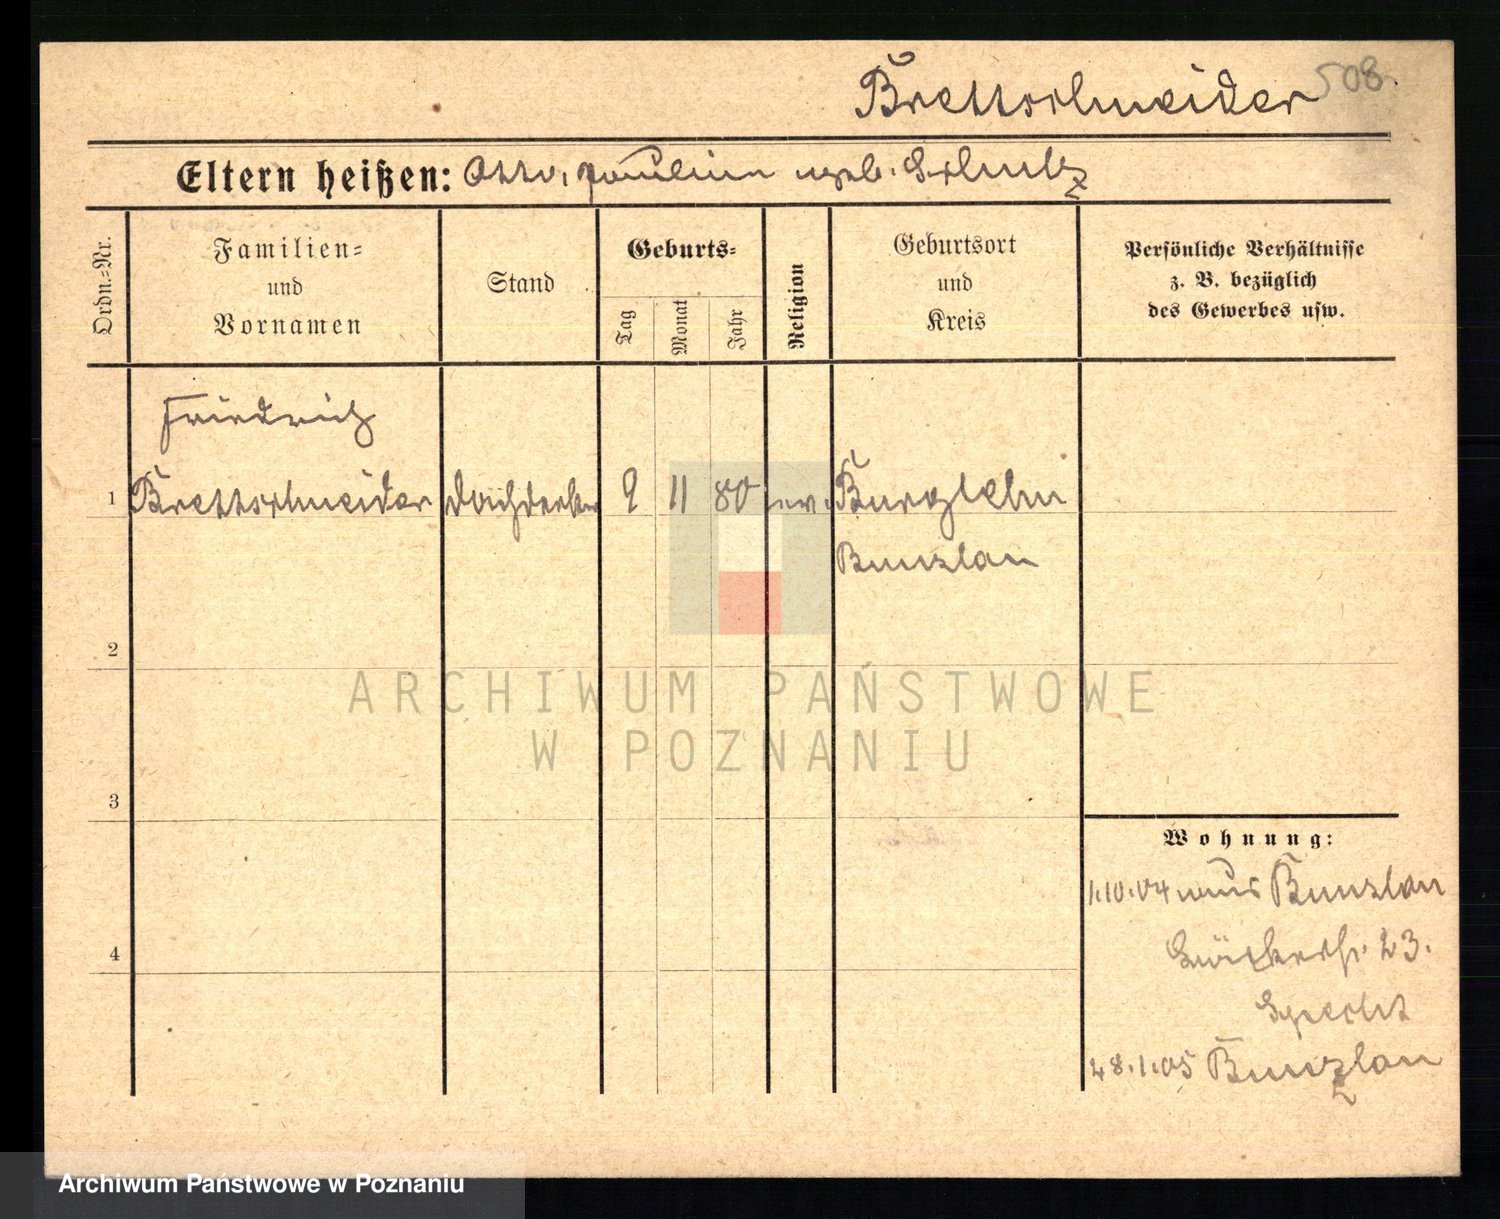 Brettschneider 508
Eltern heißen: Otto, Pauline geb. Scholtz
Ordn.-Nr.
Familien-
und
Vornamen
Stand
Geburts-
Tag
Monat
Jahr
Religion
Geburtsort
und
Kreis
Persönliche Verhältnisse
z. B. bezüglich
des Gewerbes usw.
Friedrich
1 Brettschneider Dachdecker 9 11 80 ev.
Bunzlau
2
ARCHIWUM PAŃSTWOWE
W POZNANIU
3
Wohnung:
1.10.04 aus Bunzlau
4
23.
Specht
28.1.05 Bunzlau
Archiwum Państwowe w Poznaniu